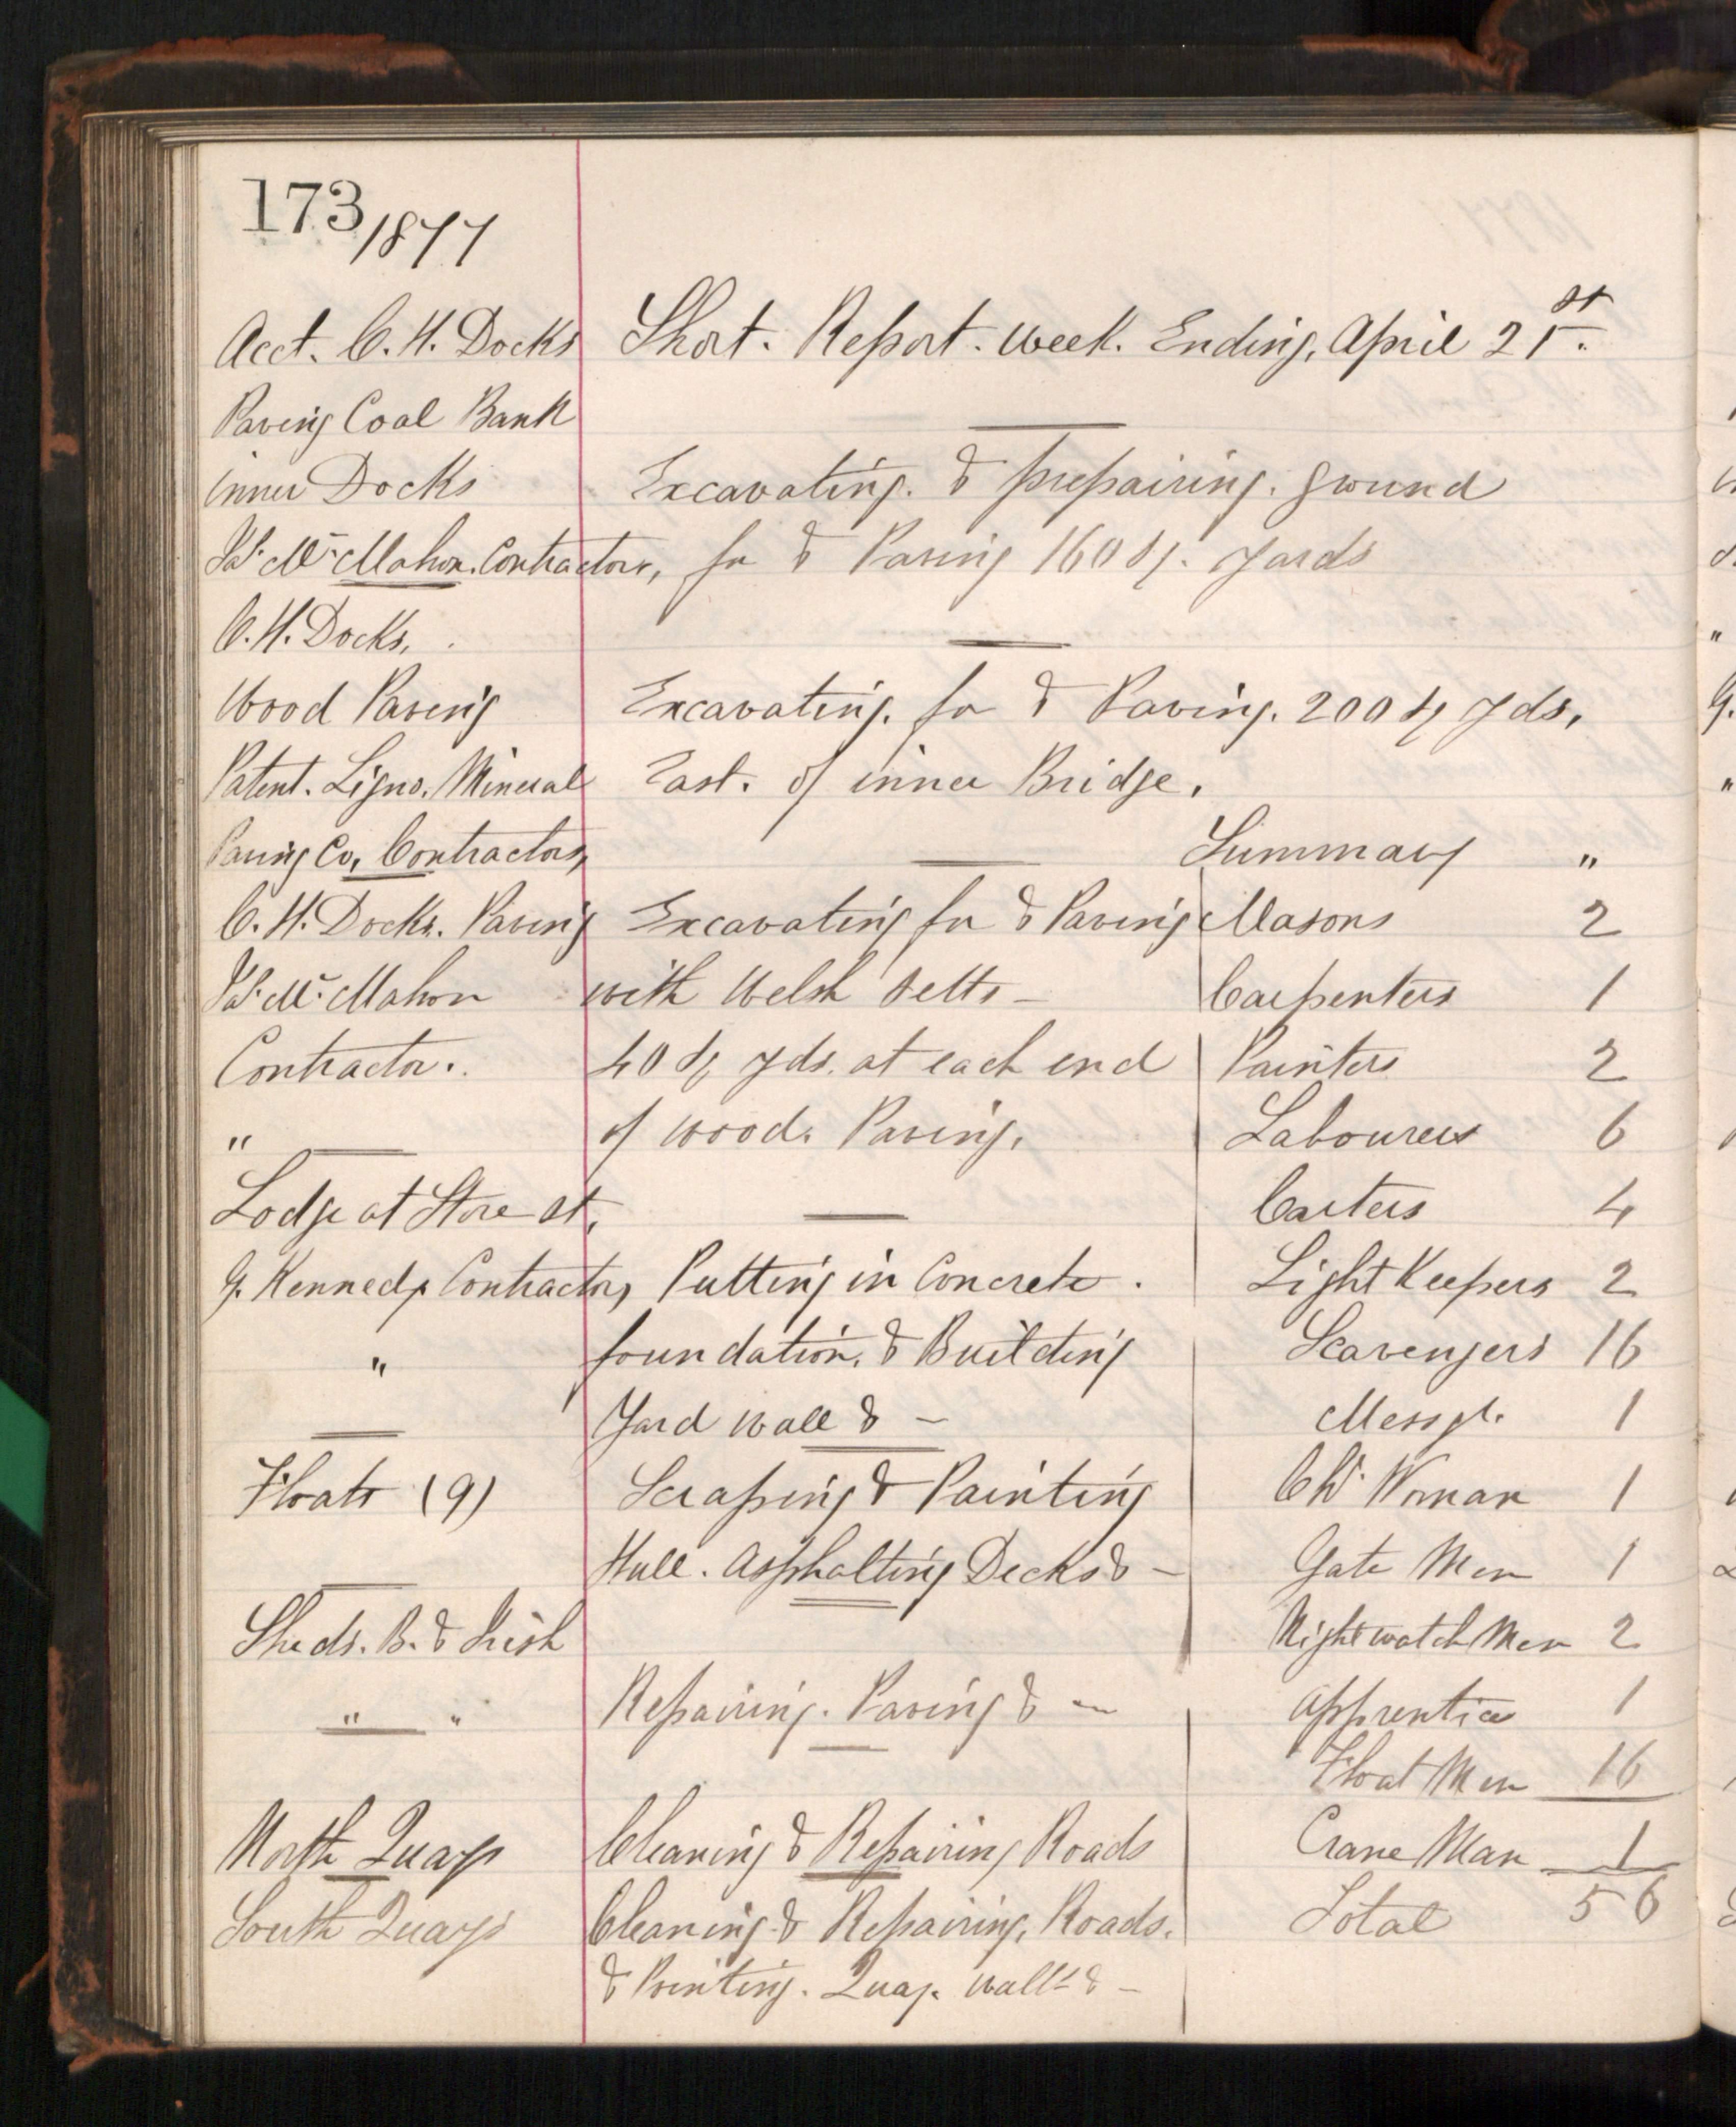 173/1877
Acct. C. H. Docks Short. Report. Week. Ending, April 21st.
Paving Coal Bank
inner Docks Excavating. & prepairing. ground
Mc Mahon. Contractor, for & Paving 160 Sq. Yards
C. H. Docks.
Wood Paving Excavating. for & Paving. 200 Sq Yds,
Patent. Ligno. Mineral East. of inner Bridge.
Paving Co, Contractors, Summary "
C. H. Docks. Paving Excavating for & Paving Masons 2
Mc Mahon with Welsh Setts - Carpenters 1
Contractor. 40 Sq Yds. at each end Painters 2
" of Wood. Paving. Labourers 6
Lodge at Store St, Carters 4
G. Kennedy Contractor, Putting in Concrete. Light Keepers 2
" foundation. & Building Scavengers 16
Yard Wall & - Messgr. 1
Floats (9) Scraping & Painting Ch. Woman 1
Hull. Asphalting Decks & - Gate Men 1
Sheds. B. & Irish Night watch Men 2
" " Repairing. Paving & - Apprentice 1
Float Men 16
North Quays Cleaning & Repairing Roads Crane Man 1
South Quays Cleaning & Repairing, Roads. Total 56
& Pointing. Quay. Walls & -